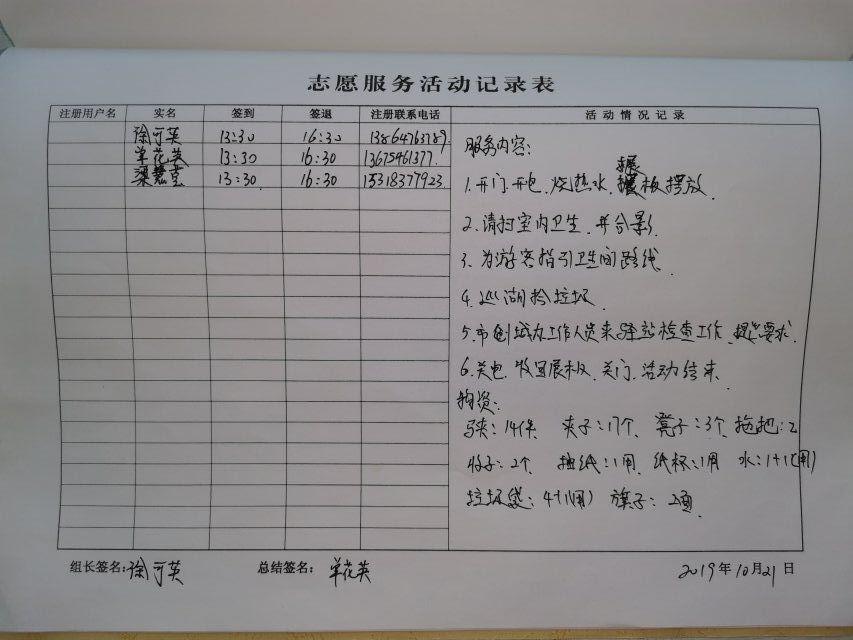 志愿服务活动记录表
注册用户名 实名 签到 签退 注册联系电话 活动情况记录
徐可英 13:30 16:30 13864763789
单花英 13:30 16:30 13675461377
梁慧芝 13:30 16:30 15318377923
服务内容:
展
1.开门、开电、烧热水、板摆放
2.清扫室内卫生、并合影
3.为游客指引卫生间路线
4.巡湖捡垃圾
5.市创城办工作人员来驿站检查工作、提出要求
6.关电、收回展板、关门、活动结束
物资:
马夹:14件 夹子:17个 凳子:3个 拖把:2
2个 抽纸:1用 纸杯:1用 水:1+1(用)
垃圾袋:4+1(用) 旗子:2面
组长签名:徐可英 总结签名:单花英 2019年10月21日